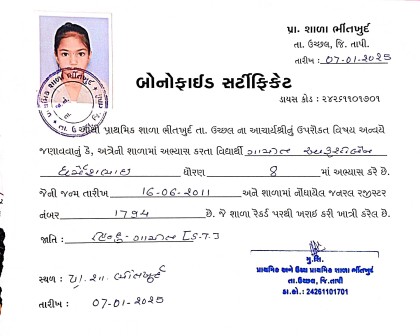 પ્રા. શાળા ભીંતખુર્દ
તા. ઉચ્છલ, જિ. તાપી.
તારીખ : 07-01-2025
બોનોફાઈડ સર્ટીફિકેટ
ડાયસ કોડ : ૨૪૨૬૧૧૦૧૭૦૧
આથી પ્રાથમિક શાળા ભીંતખુર્દ તા. ઉચ્છલ ના આચાર્યશ્રીનું ઉપરોક્ત વિષય અન્વયે
જણાવવાનું કે, અત્રેની શાળામાં અભ્યાસ કરતા વિદ્યાર્થી ગામીત
ધર્મેશભાઈ ધોરણ 8 માં અભ્યાસ કરે છે.
જેની જન્મ તારીખ 16-06-2011 અને શાળામાં નોંધાયેલ જનરલ રજીસ્ટર
નંબર 1794 છે. જે શાળા રેકર્ડ પરથી ખરાઈ કરી ખાત્રી કરેલ છે.
જાતિ : હિન્દુ-ગામીત [S.T.]
સ્થળ : પ્રા.શા. ભીંતખુર્દ
તારીખ : 07-01-2025
મુ.શિ.
પ્રાથમિક અને ઉચ્ચ પ્રાથમિક શાળા ભીંતખુર્દ
તા.ઉચ્છલ, જિ.તાપી
ડા.કો.: 24261101701